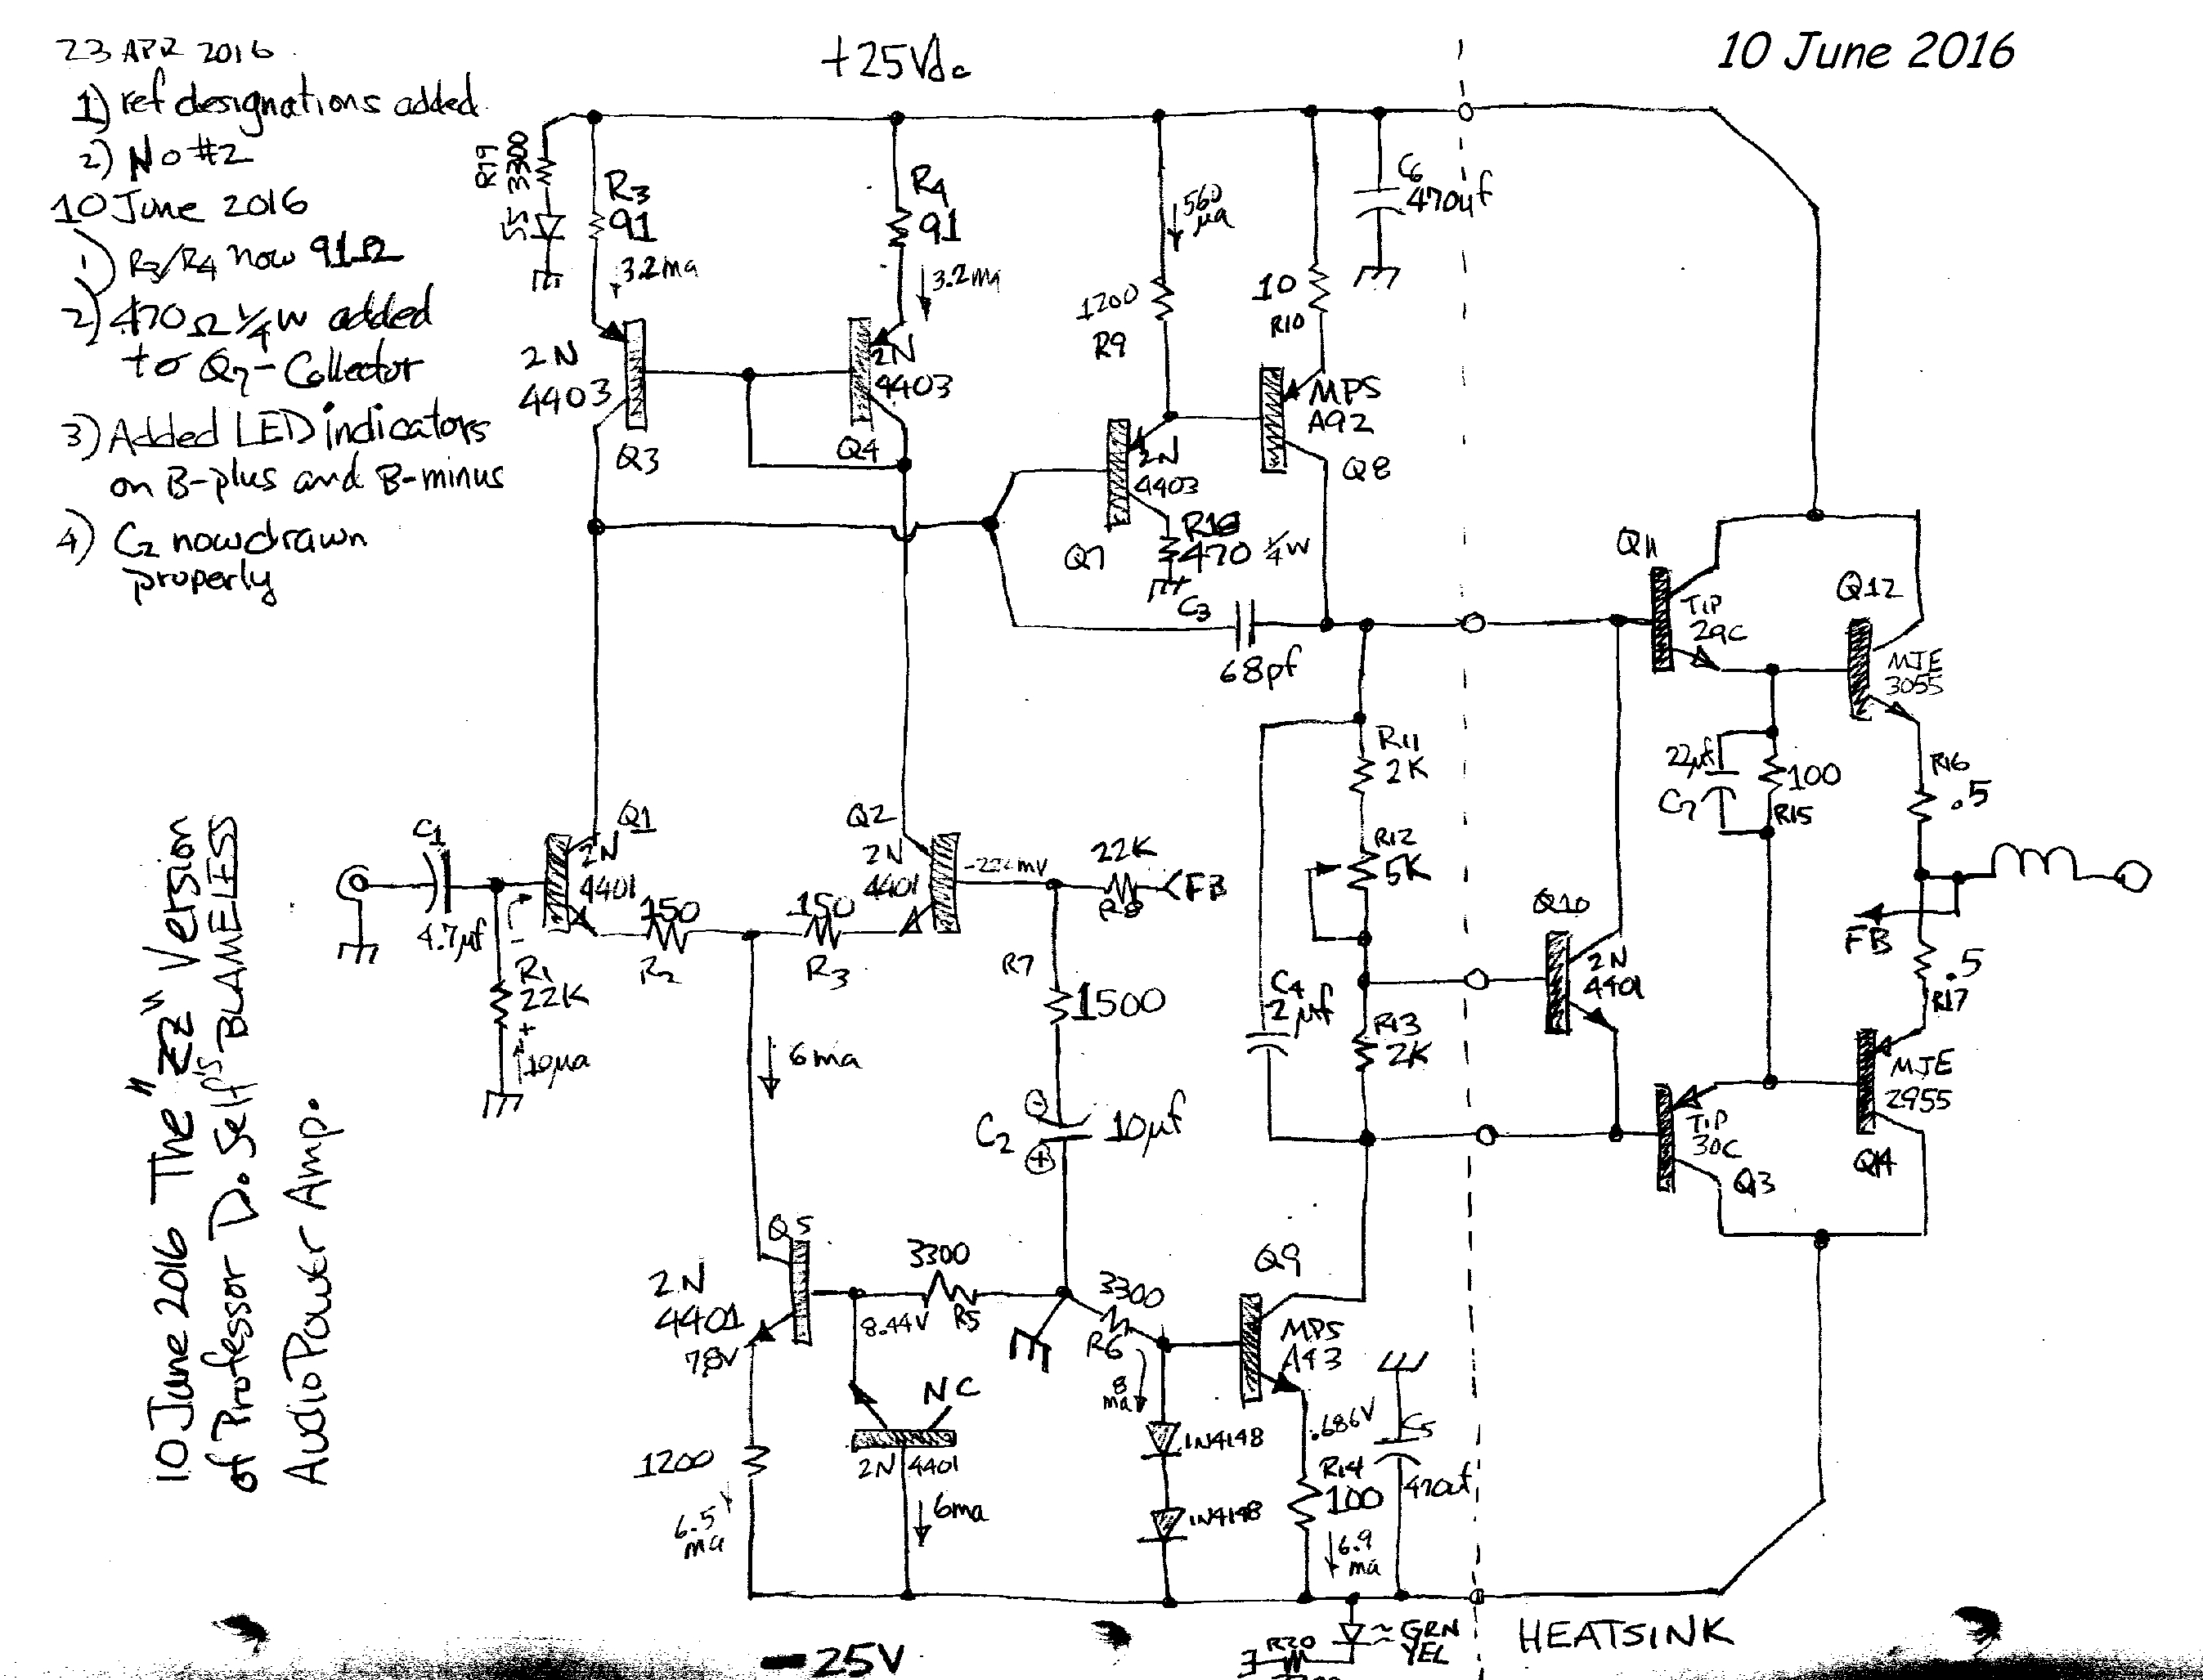 23 APR 2016
1) ref designations added
2) No #2
10 June 2016
1) R3/R4 now 91Ω
2) 470Ω ¼w added
to Q7-Collector
3) Added LED indicators
on B-plus and B-minus
4) C2 now drawn
properly
+25Vdc
10 June 2016
R19
3300
R3
91
3.2ma
R4
91
3.2ma
2N
4403
Q3
2N
4403
Q4
560
µa
1200
R9
10
R10
C6
470uf
MPS
A92
Q8
2N
4403
Q7
470 ¼w
C3
68pf
Q11
TIP
29C
Q12
MJE
3055
22µf
C7
100
R15
R16
.5
FB
.5
R17
R11
2K
R12
5K
C4
2µf
R13
2K
Q10
2N
4401
TIP
30C
Q13
MJE
2955
Q14
C1
4.7µf
Q1
2N
4401
-
R1
22K
+
10µa
150
R2
150
R3
Q2
2N
4401
22K
R8
FB
R7
1500
6ma
C2
-
10µf
+
Q5
2N
4401
7.8V
3300
R5
8.44V
3300
R6
8
ma
Q9
MPS
A43
.686V
C5
470uf
R14
100
6.9
ma
NC
2N 4401
6ma
1200
6.5
ma
1N4148
1N4148
-25V
R20
GRN
YEL
HEATSINK
10 June 2016 The "ZZ" Version
of Professor D. Self's BLAMELESS
Audio Power Amp.